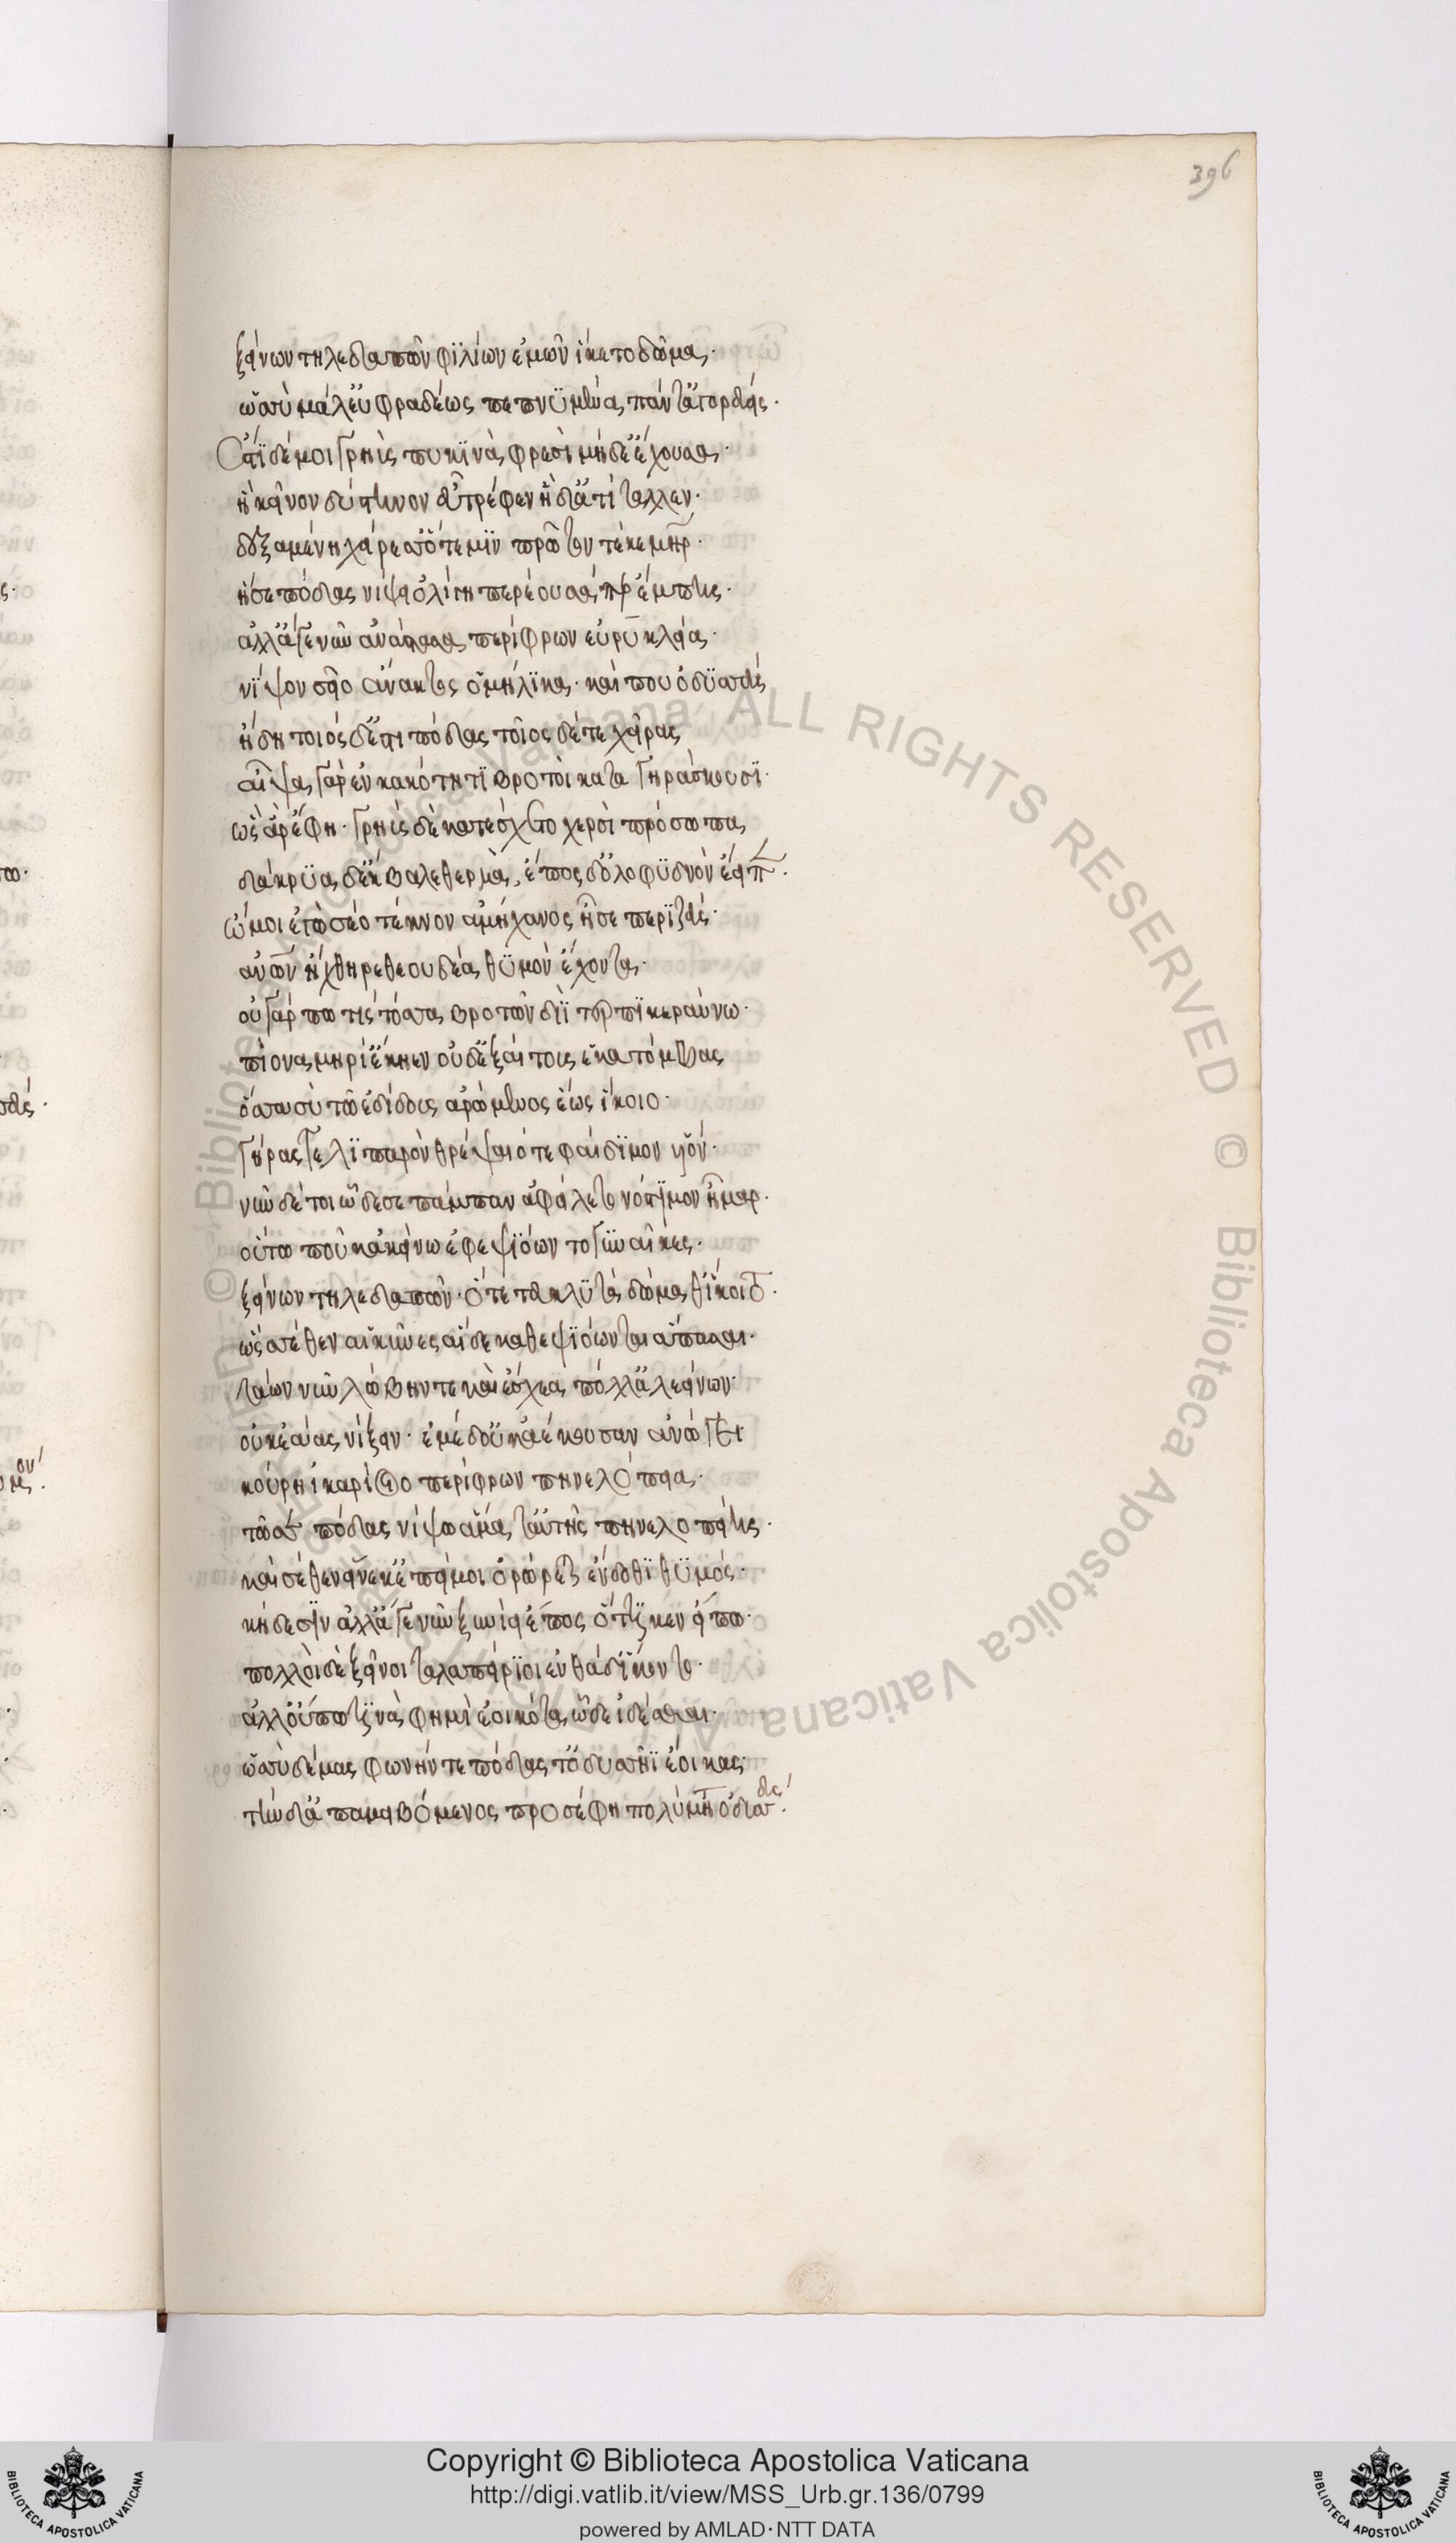 396
ξείνων τηλεδαπῶν φιλίων ἐμὸν ἵκετο δῶμα·
ὡς σὺ μάλ' εὐφραδέως πεπνυμένα πάντ' ἀγορεύεις·
ἔστι δέ μοι γρηῢς πυκινὰ φρεσὶ μήδε' ἔχουσα·
ἣ κεῖνον δύστηνον ἐϋτρέφεν ἠδ' ἀτίταλλεν·
δεξαμένη χείρεσσ' ὅτε μιν πρῶτον τέκε μήτηρ·
ἥ σε πόδας νίψει ὀλίγη περ ἐοῦσα περ ἔμπης·
ἀλλ' ἄγε νῦν ἀνστᾶσα περίφρων εὐρύκλεια·
νίψον σεῖο ἄνακτος ὁμήλικα· καί που ὀδυσσεύς
ἤδη τοιόσδ' ἐστὶ πόδας τοιόσδέ τε χεῖρας
αἶψα γὰρ ἐν κακότητι βροτοὶ καταγηράσκουσι·
ὣς ἄρ' ἔφη· γρηῢς δὲ κατέσχετο χερσὶ πρόσωπα
δάκρυα δ' ἔκβαλε θερμὰ, ἔπος δ' ὀλοφυδνὸν ἔειπεν·
ὤμοι ἐγὼ σέο τέκνον ἀμήχανος ἦ σε περὶ ζεύς·
ἀνθρώπων ἤχθηρε θεουδέα θυμὸν ἔχοντα·
οὐ γάρ πω τίς τόσσα βροτῶν διῒ τερπικεραύνω·
πίονα μηρί' ἔκηεν οὐδ' ἐξαίτους ἑκατόμβας
ὅσσα σὺ τῶ ἐδίδους ἀρώμενος ἕως ἵκοιο·
γῆράς τε λιπαρὸν θρέψαιό τε φαίδιμον υἱόν·
νῦν δέ τοι ὧδέ σε πάμπαν ἀφείλετο νόστιμον ἦμαρ·
οὕτω που κἀκείνω ἐφεψιόωντο γυναῖκες·
ξείνων τηλεδαπῶν· ὅτε τευ κλυτὰ δώμαθ' ἵκοιτο·
ὡς σέθεν αἱ κύνες αἵδε καθεψιόωνται ἅπασαι·
τάων νῦν λώβην τε καὶ αἴσχεα πόλλ' ἀλεείνων·
οὐκ ἐάας νίζειν· ἐμὲ δ' οὐκ ἀέκουσαν ἀνώγει
κούρη ἰκαρίοιο περίφρων πηνελόπεια·
τῶ σε πόδας νίψω ἅμα τ' αὐτῆς πηνελοπείης·
καὶ σέθεν εἵνεκ' ἐπεί μοι ὀρώρεται ἔνδοθι θυμός·
κήδεσιν ἀλλ' ἄγε νῦν ξυνίει ἔπος ὅττι κεν εἴπω·
πολλοὶ δὲ ξεῖνοι ταλαπείριοι ἐνθάδ' ἵκοντο·
ἀλλ' οὔπω τινὰ φημὶ ἐοικότα ὧδε ἰδέσθαι·
ὡς σὺ δέμας φωνήν τε πόδας τ' ὀδυσῆϊ ἔοικας·
τὴν δ' ἀπαμειβόμενος προσέφη πολύμητις ὀδυσσεύς·
Copyright © Biblioteca Apostolica Vaticana
http://digi.vatlib.it/view/MSS_Urb.gr.136/0799
powered by AMLAD·NTT DATA